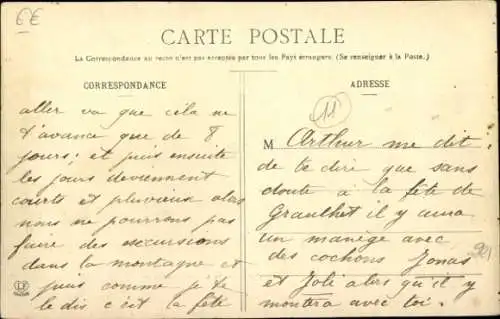 6€
CARTE POSTALE
La Correspondance au recto n'est pas acceptée par tous les Pays étrangers. (Se renseigner à la Poste.)
CORRESPONDANCE
aller va que cela ne
t'avance que de 8
jours; et puis ensuite
les jours deviennent
courts et pluvieux alors
nous ne pourrons pas
faire des excursions
dans la montagne et
puis comme je te
le dis c'est la fête
ADRESSE
11
M Arthur me dit
de te dire que sans
doute à la fête de
Graulhet il y aura
un manège avec
des cochons Jonas
et Joli alors qu'il y
montera avec toi.